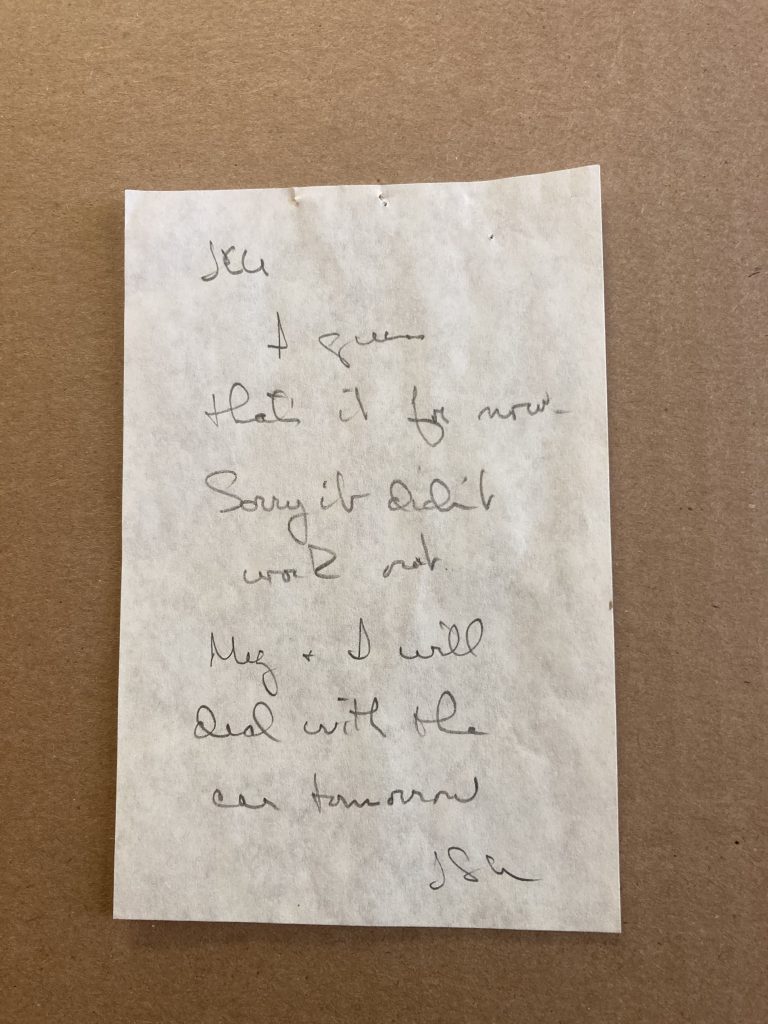 JKG
I guess
that's it for now-
Sorry it didn't
work out.
Meg + I will
deal with the
car tomorrow
JSG